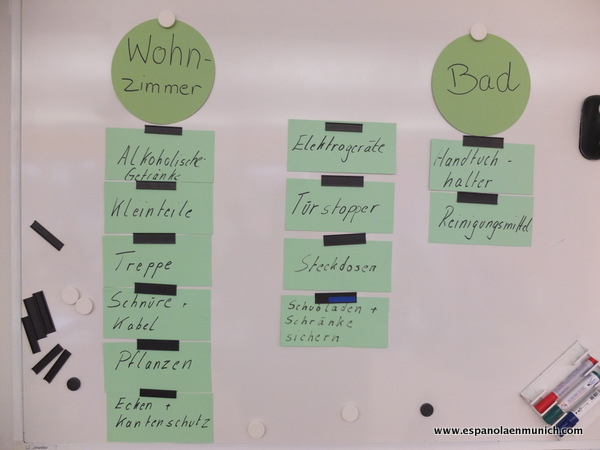 Wohn-
zimmer
Alkoholische
Getränke
Kleinteile
Treppe
Schnüre +
Kabel
Pflanzen
Ecken +
Kantenschutz
Elektrogeräte
Türstopper
Steckdosen
Schubladen +
Schränke
sichern
Bad
Handtuch-
halter
Reinigungsmittel
www.espanolaenmunich.com